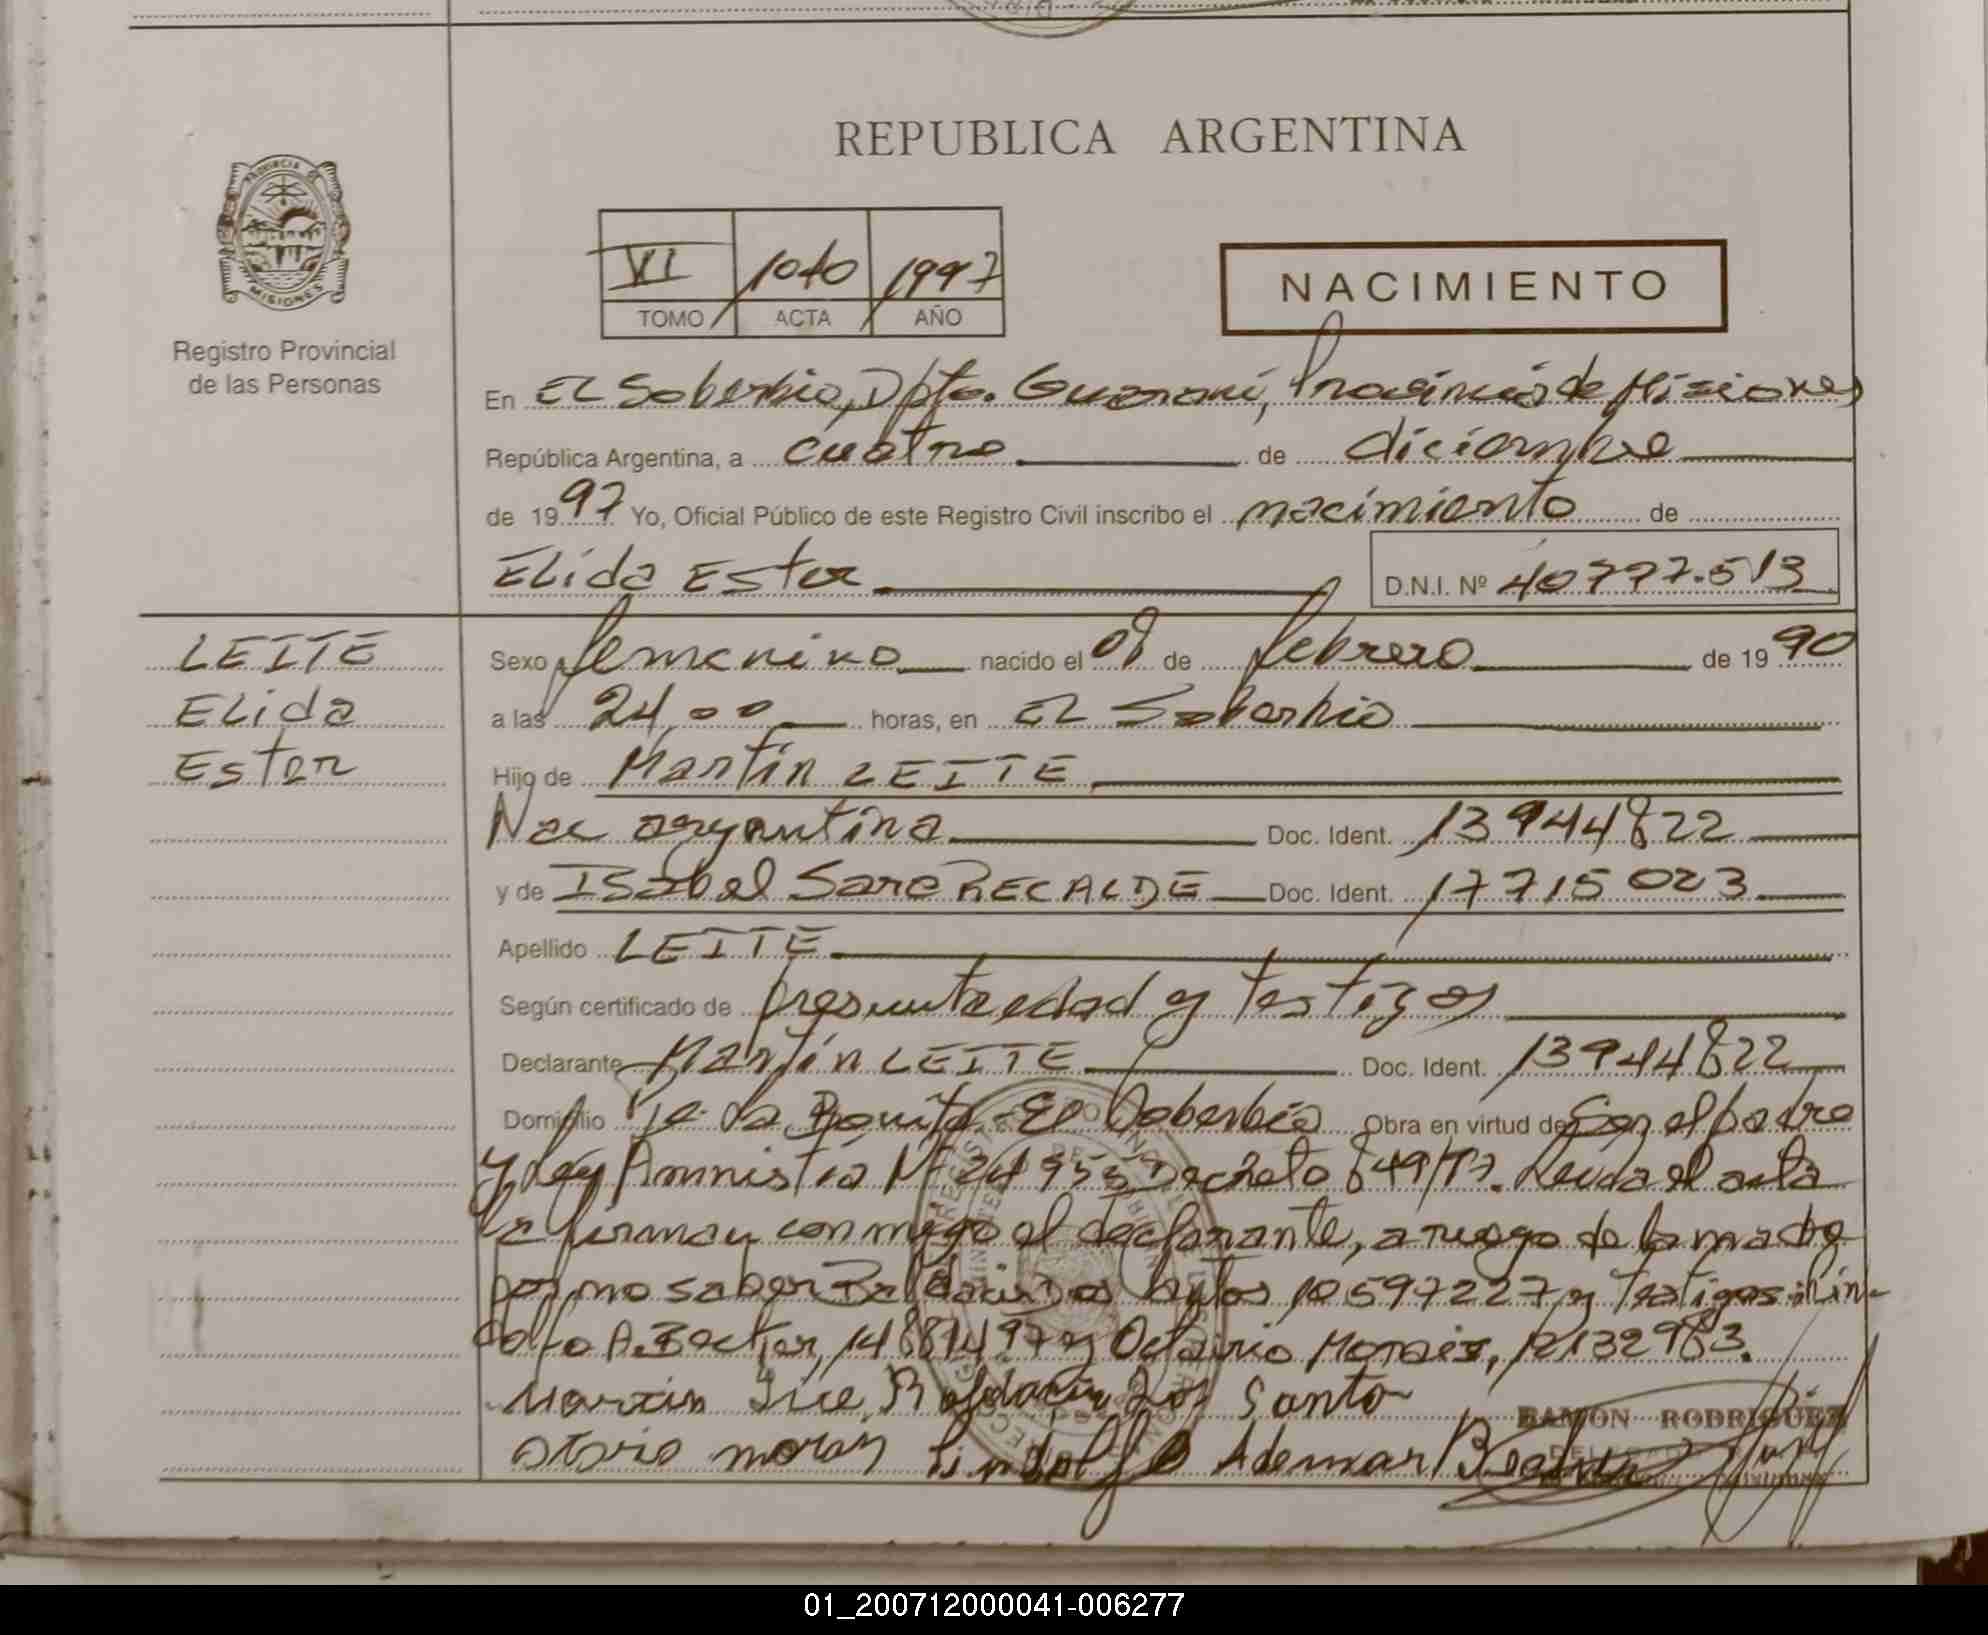 REPUBLICA ARGENTINA
PROVINCIA DE
MISIONES
Registro Provincial
de las Personas
VI 1040 1997
TOMO ACTA AÑO
NACIMIENTO
En EL Soberbio, Dpto. Guarani, Provincia de Misiones
República Argentina, a cuatro de diciembre
de 1997 Yo, Oficial Público de este Registro Civil inscribo el nacimiento de
Elida Ester D.N.I. Nº 40777.513
LEITE
Elida
Ester
Sexo femenino nacido el 08 de febrero de 1990
a las 24,00 horas, en El Soberbio
Hijo de Martín LEITE
Nac argentina Doc. Ident. 13944822
y de Isabel Sara RECALDE Doc. Ident. 17715023
Apellido LEITE
Según certificado de presunta edad y testigos
Declarante Martín LEITE Doc. Ident. 13944822
Domicilio Pje. La Bonita - El Soberbio Obra en virtud de Ser el padre
y Ley Amnistia Nº 24955 Decreto 849/97. Leida el acta
la firman conmigo el declarante, a ruego de la madre
por no saber Baldair Dos Santos 10597227 y testigos: Lin-
dolfo A. Becker, 14881497 y Octavio Morais, 12132983.
Martin Dos Santo
moray Lindolfo Ademar
RAMON RODRIGUEZ
DELEGADO
01_200712000041-006277